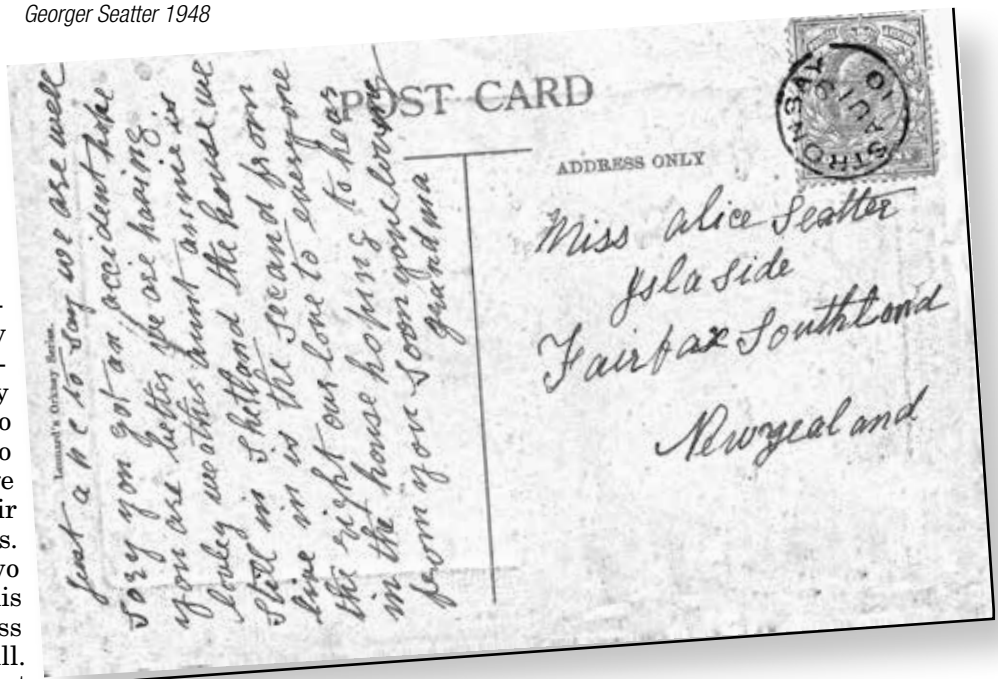 Georger Seatter 1948
POST CARD
ADDRESS ONLY
STRONSAY
AU 9
10
Leonard's Orkney Series.
Just a n e to say we are well
sory you got an accident hope
you are better we are having
lovley weather aunt annie is
still in Shetland the house we
live in is the second from
the right our love to everyone
in the house hoping to hear
from you soon yours loving
grandma
Miss Alice Seatter
Isla Side
Fairfax Southland
Newzealand
y
y
o
o
ve
ir
s.
vo
is
ss
ll.